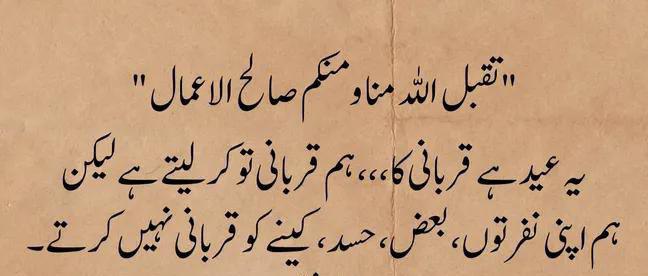 "تقبل اللہ منا و منکم صالح الاعمال"
یہ عید ہے قربانی کا،،،ہم قربانی تو کر لیتے ہے لیکن
ہم اپنی نفرتوں، بعض، حسد، کینے کو قربانی نہیں کرتے۔